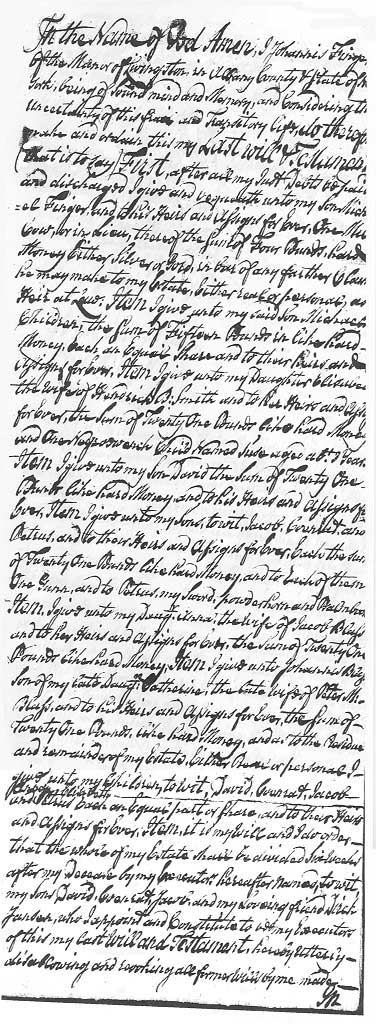 In the Name of God Amen, I Johannis Finger
of the Manor of Livingston, in Albany County & State of
York, being of sound mind and Memory, and Considering the
uncertainty of this frail and transitory Life, do therefore
make and ordain this my Last Will & Testament
(that is to say) First, after all my Just Debts be paid
and discharged I give and bequeath unto my Son Mich
=el Finger, and to his Heirs and Assigns for Ever, One Milk
Cow, or in Lieu, thereof the Sum of Four Pounds, hard
Money Either Silver or Gold, in bar of any further Claim
he may make to my Estate, Either real or personal, as
Heir at Law. Item I give unto my said Son Michael
Children, the Sum of Fifteen Pounds in like hard
Money, Each an Equal Share and to their Heirs and
Assigns for Ever, Item I give unto my Daughter
the Wife of Hendrick B. Smith and to her Heirs and
for Ever, the Sum of Twenty One Pounds like hard Money
and One Negro wench Child Named Suse aged
Item I give unto my Son David the Sum of Twenty One
Pounds like hard Money, and to his Heirs and Assigns for
Ever, Item I give unto my Sons, to wit, Jacob, Coenrad, and
Petrus, and to their Heirs and Assigns for Ever, Each the Sum
of Twenty One Pounds like hard Money, and to Each of them
One Gunn, and to Petrus, my Sword, powderhorn and
Item, I give unto my Daugt. Anna, the Wife of Jacob Blass
and to her Heirs and Assigns for Ever, the Sum of Twenty One
Pounds like hard Money, Item I give unto Johannis Blass
Son of my late Daugt. Catherine, the late Wife of Peter M.
Blass, and to his Heirs and Assigns for Ever, the Sum of
Twenty One Pounds, like hard Money, and as to the Residue
and remainder of my Estate, Either Real or personal, I
give unto my Children, to wit, David, Coenrad, Jacob
and Petrus Each an Equal part or Share, and to their Heirs
and Assigns for Ever, Item, it is my Will and I do order
that the whole of my Estate shall be divided Six Weeks
after my Decease by my Executors hereafter Named, to wit
my Sons David, Coenrad, Jacob and my Loving friend Dirk
Jansen, who I appoint and Constitute to be my Executors
of this my Last Will and Testament, hereby Utterly
disallowing and revoking all former Wills by me made
In